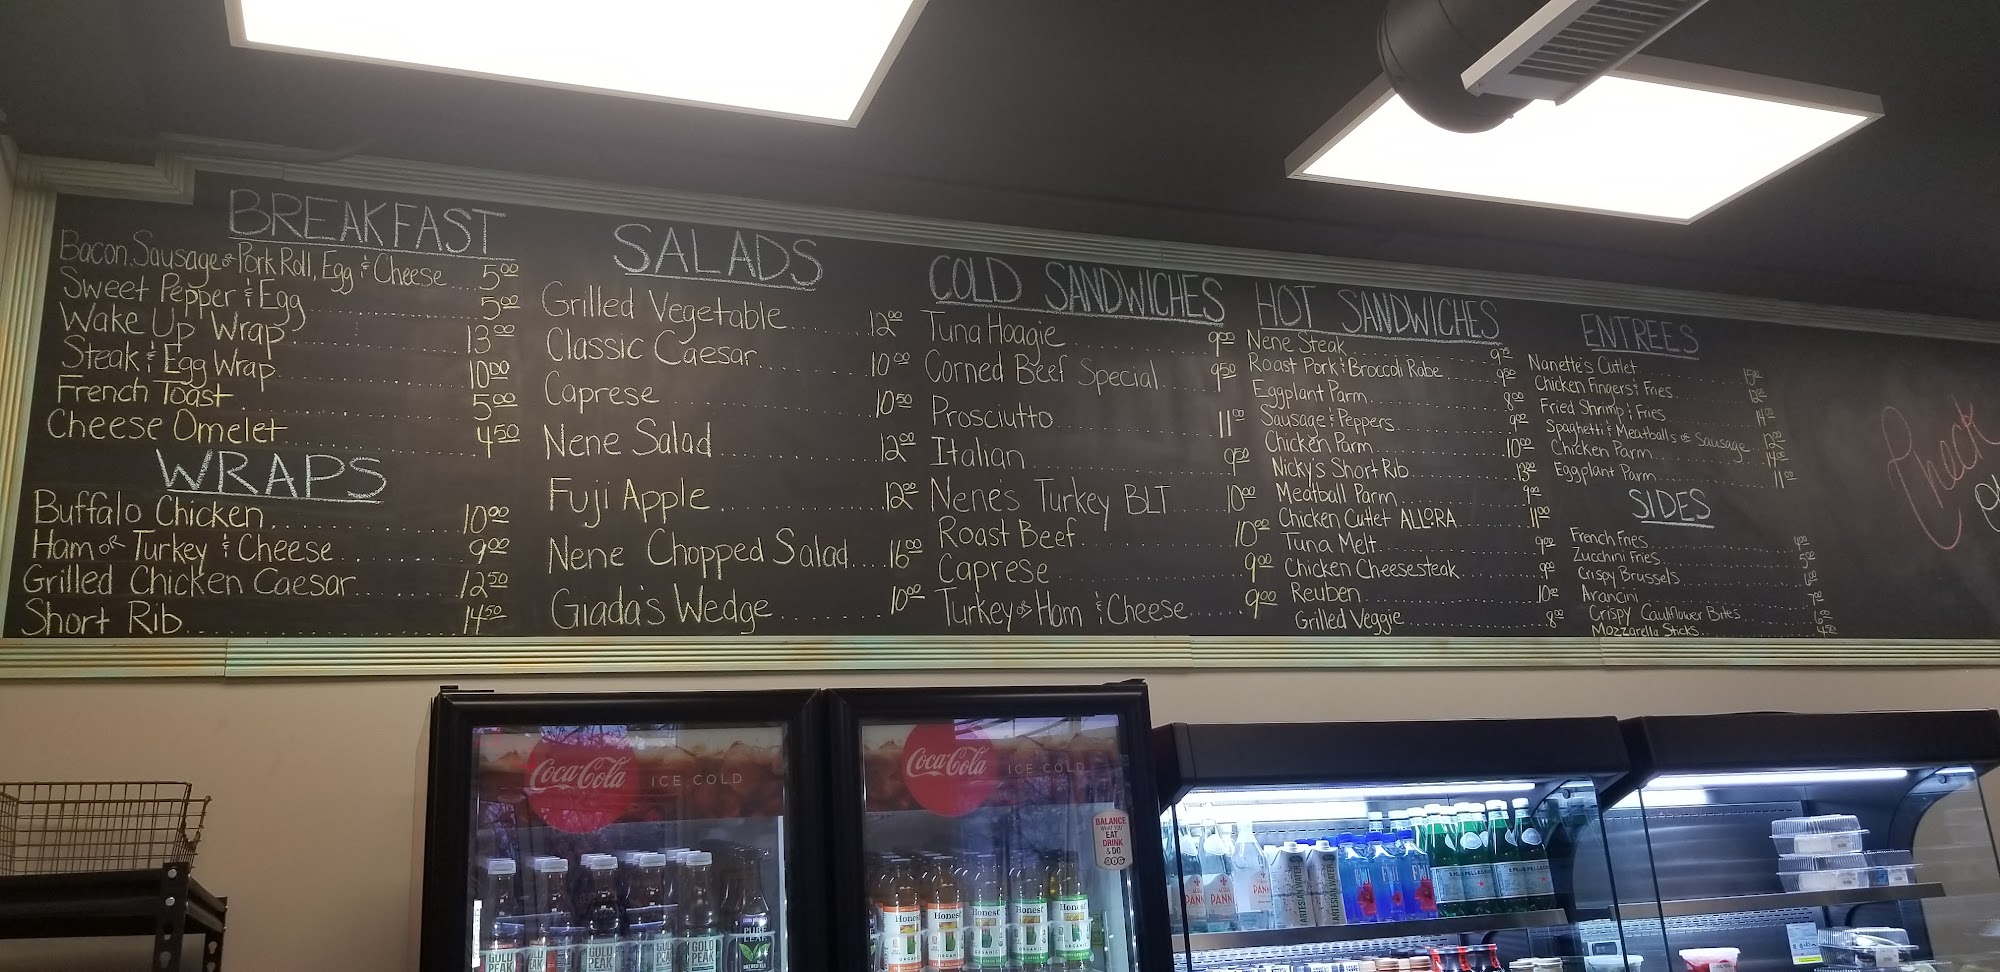 BREAKFAST
Bacon, Sausage or Pork Roll, Egg & Cheese....5.00
Sweet Pepper & Egg 5.00
Wake Up Wrap 13.00
Steak & Egg Wrap 10.00
French Toast 5.00
Cheese Omelet 4.50
WRAPS
Buffalo Chicken 10.00
Ham or Turkey & Cheese 9.00
Grilled Chicken Caesar 12.50
Short Rib 14.50
SALADS
Grilled Vegetable 12.00
Classic Caesar 10.00
Caprese 10.50
Nene Salad 12.00
Fuji Apple 12.00
Nene Chopped Salad 16.00
Giada's Wedge 10.00
COLD SANDWICHES
Tuna Hoagie 9.00
Corned Beef Special 9.50
Prosciutto 11.00
Italian 9.50
Nene's Turkey BLT 10.00
Roast Beef 10.00
Caprese 9.00
Turkey or Ham & Cheese 9.00
HOT SANDWICHES
Nene Steak
Roast Pork & Broccoli Rabe 9.50
Eggplant Parm 8.00
Sausage & Peppers 9.00
Chicken Parm 10.00
Nicky's Short Rib 13.00
Meatball Parm 9.00
Chicken Cutlet ALLORA 11.00
Tuna Melt 9.00
Chicken Cheesesteak 9.00
Reuben 10.00
Grilled Veggie 8.00
ENTREES
Nanette's Cutlet 15.00
Chicken Fingers & Fries 12.00
Fried Shrimp & Fries 14.00
Spaghetti & Meatballs or Sausage 12.00
Chicken Parm 14.00
Eggplant Parm 11.00
SIDES
French Fries 4.00
Zucchini Fries 5.00
Crispy Brussels 6.00
Arancini 7.00
Crispy Cauliflower Bites 6.00
Mozzarella Sticks 4.50
Check
Coca-Cola ICE COLD
Coca-Cola ICE COLD
BALANCE
WHAT YOU
EAT
DRINK
& DO
GOLD PEAK
GOLD PEAK
GOLD PEAK
GOLD PEAK
GOLD PEAK
PURE LEAF
Honest
Honest
Honest
Honest
Honest
ORGANIC
ACQUA PANNA
ARTESIAN WATER
ARTESIAN WATER
FIJI
FIJI
FIJI
S.PELLEGRINO